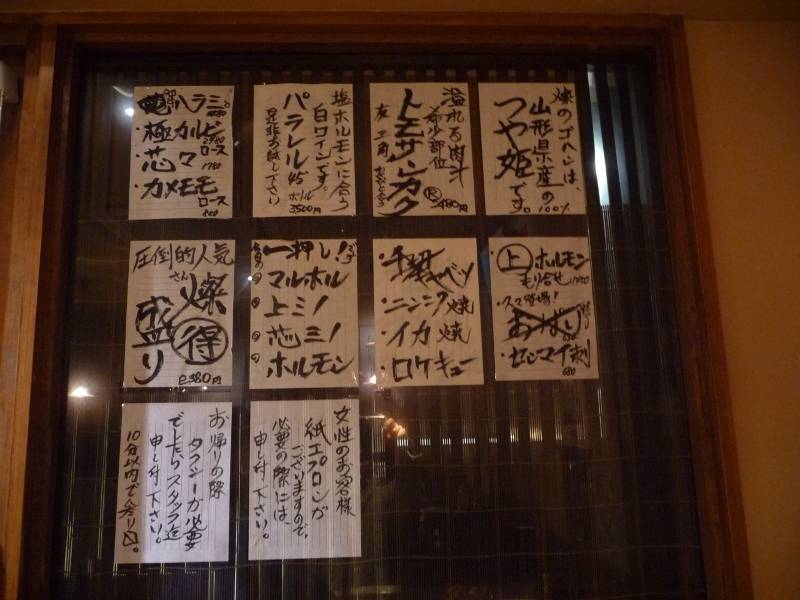 ハラミ
・極カルビ
・芯々ロース
1780
・カメモモロース
塩ホルモンに合う
白ワインです。
パラレル45
是非お試し下さい
ボトル
3500円
溢れる肉汁
希少部位
トモサンカク
友 三角
1480円
燦のゴハンは、
山形県産の
100%
つや姫です。
圧倒的人気
さん
燦
得
盛り
2380円
一押し!
マルホル
上ミノ
芯ミノ
ホルモン
・ニンニク焼
・イカ焼
・ロケキュー
・上ホルモン
もり合せ
・センマイ刺
680
お帰りの際
タクシーが必要
でしたらスタッフ迄
申し付下さい。
10分以内で参り〼。
女性のお客様
紙エプロンが
ございますので、
必要の際には、
申し付下さい。